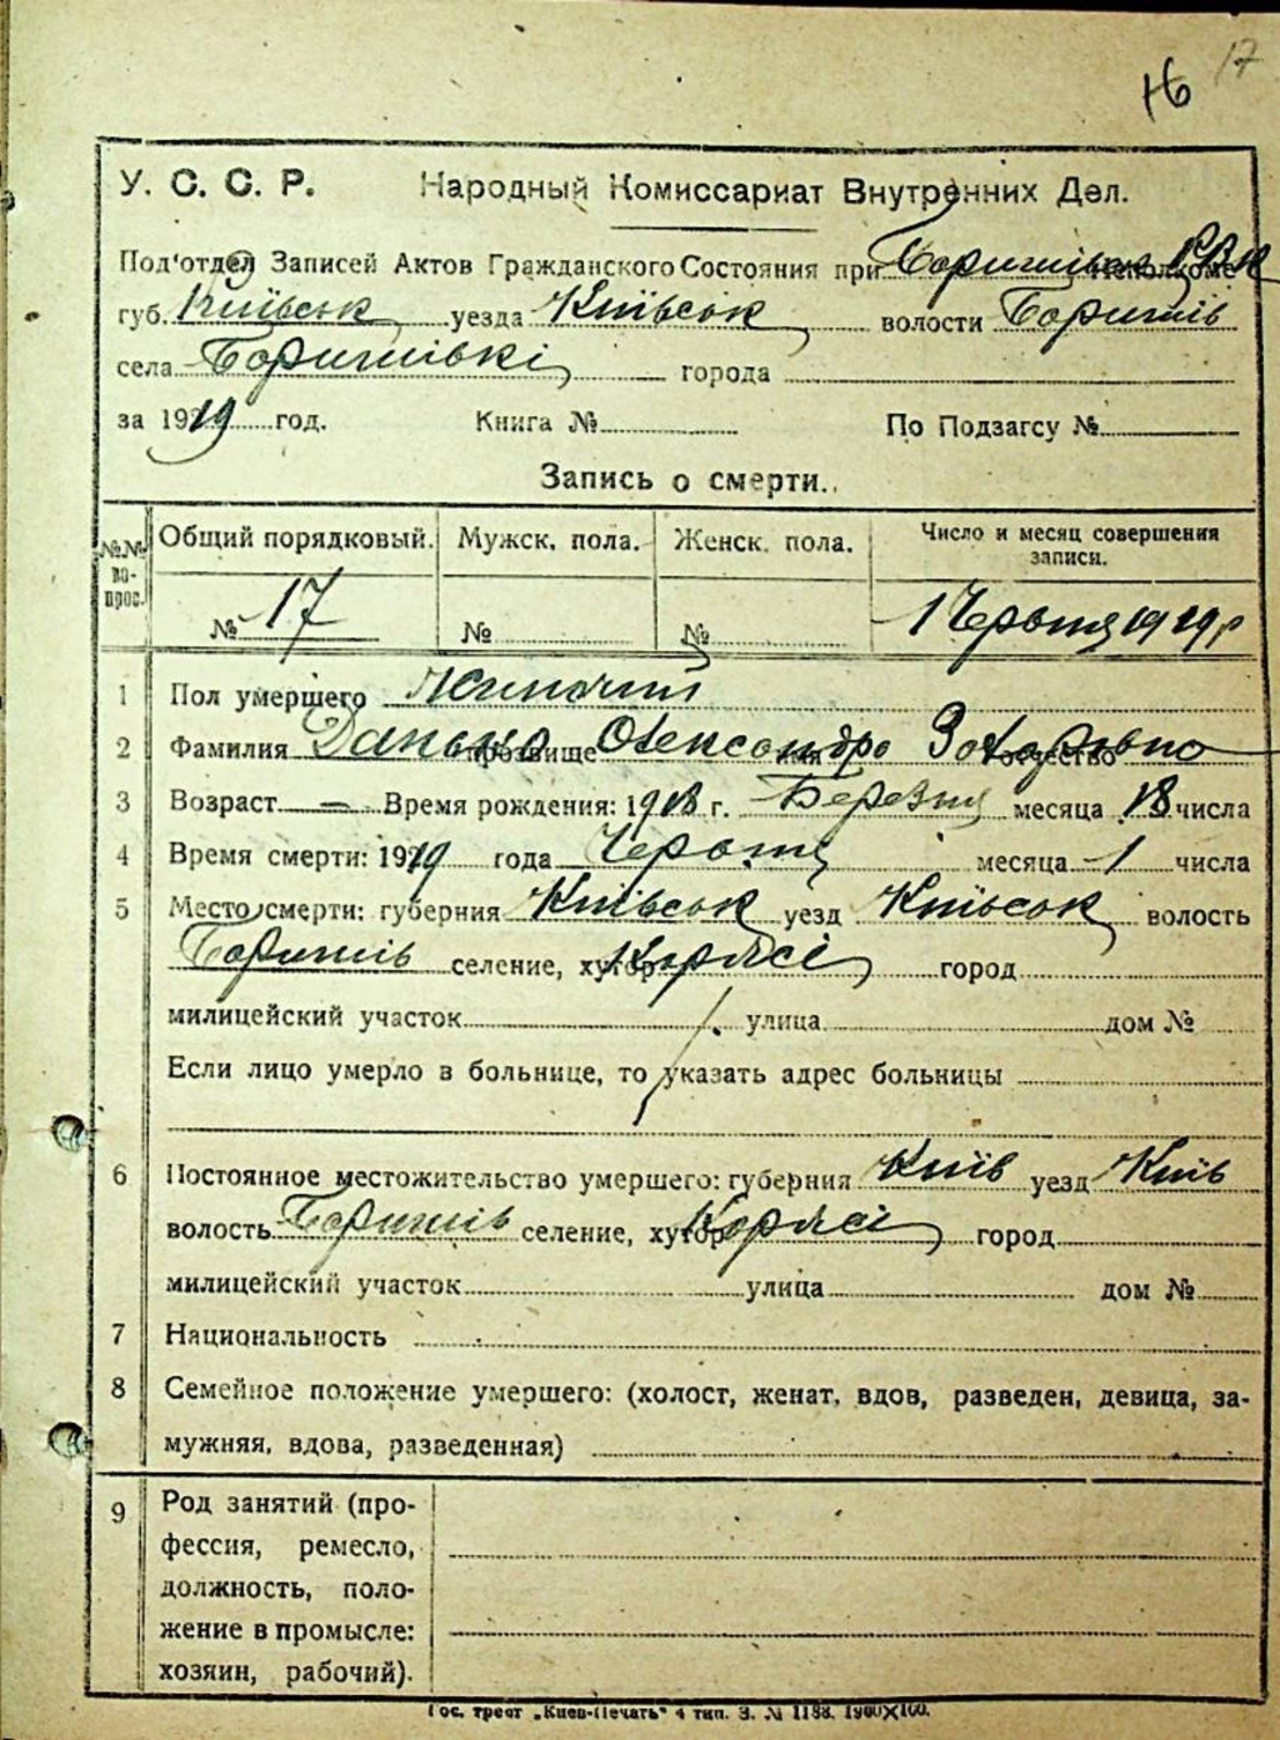 16 17
У. С. С. Р. Народный Комиссариат Внутренних Дел.
Под'отдел Записей Актов Гражданского Состояния при Боришпільск. РВК Исполкоме
губ. Київськ уезда Київськ волости Боришпів
села города
за 1919 год. Книга № По Подзагсу №
Запись о смерти.
№№ во-прос. Общий порядковый. Мужск. пола. Женск. пола. Число и месяц совершения записи.
№ 17 № № 1 Червня 1919 р
1 Пол умершего Жиночий
2 Фамилия Данько прозвище Олександра имя Захарівна отчество
3 Возраст — Время рождения: 1918 г. Березня месяца 18 числа
4 Время смерти: 1919 года Червня месяца 1 числа
5 Место смерти: губерния Київськ уезд Київськ волость
селение, хутор город
милицейский участок улица дом №
Если лицо умерло в больнице, то указать адрес больницы
6 Постоянное местожительство умершего: губерния Київ уезд Київ
волость селение, хутор город
милицейский участок улица дом №
7 Национальность
8 Семейное положение умершего: (холост, женат, вдов, разведен, девица, за-
мужняя, вдова, разведенная)
9 Род занятий (про-
фессия, ремесло,
должность, поло-
жение в промысле:
хозяин, рабочий).
Гос. трест „Киев-Печать" 4 тип. З. № 1188. 1900×100.